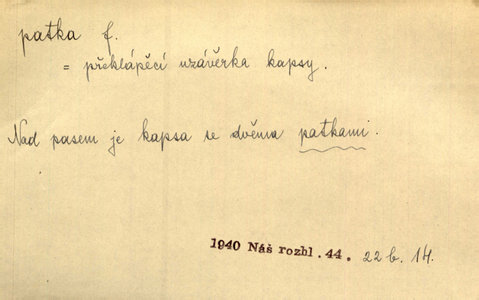 patka f.
= překlápěcí uzávěrka kapsy.
Nad pasem je kapsa se dvěma patkami.
1940 Náš rozhl. 44. 22 b. 14.